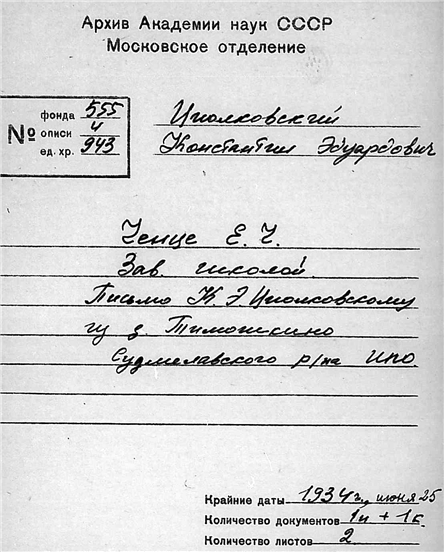 Архив Академии наук СССР
Московское отделение
№
фонда 555
описи 4
ед. хр. 943
Циолковский
Константин Эдуардович
Е. Ч.
Зав. школой.
Письмо К. Э. Циолковскому
из д. Тимошкино
Судиславского р/на ИПО.
Крайние даты 1934 г., июня 25
Количество документов 1п + 1к.
Количество листов 2